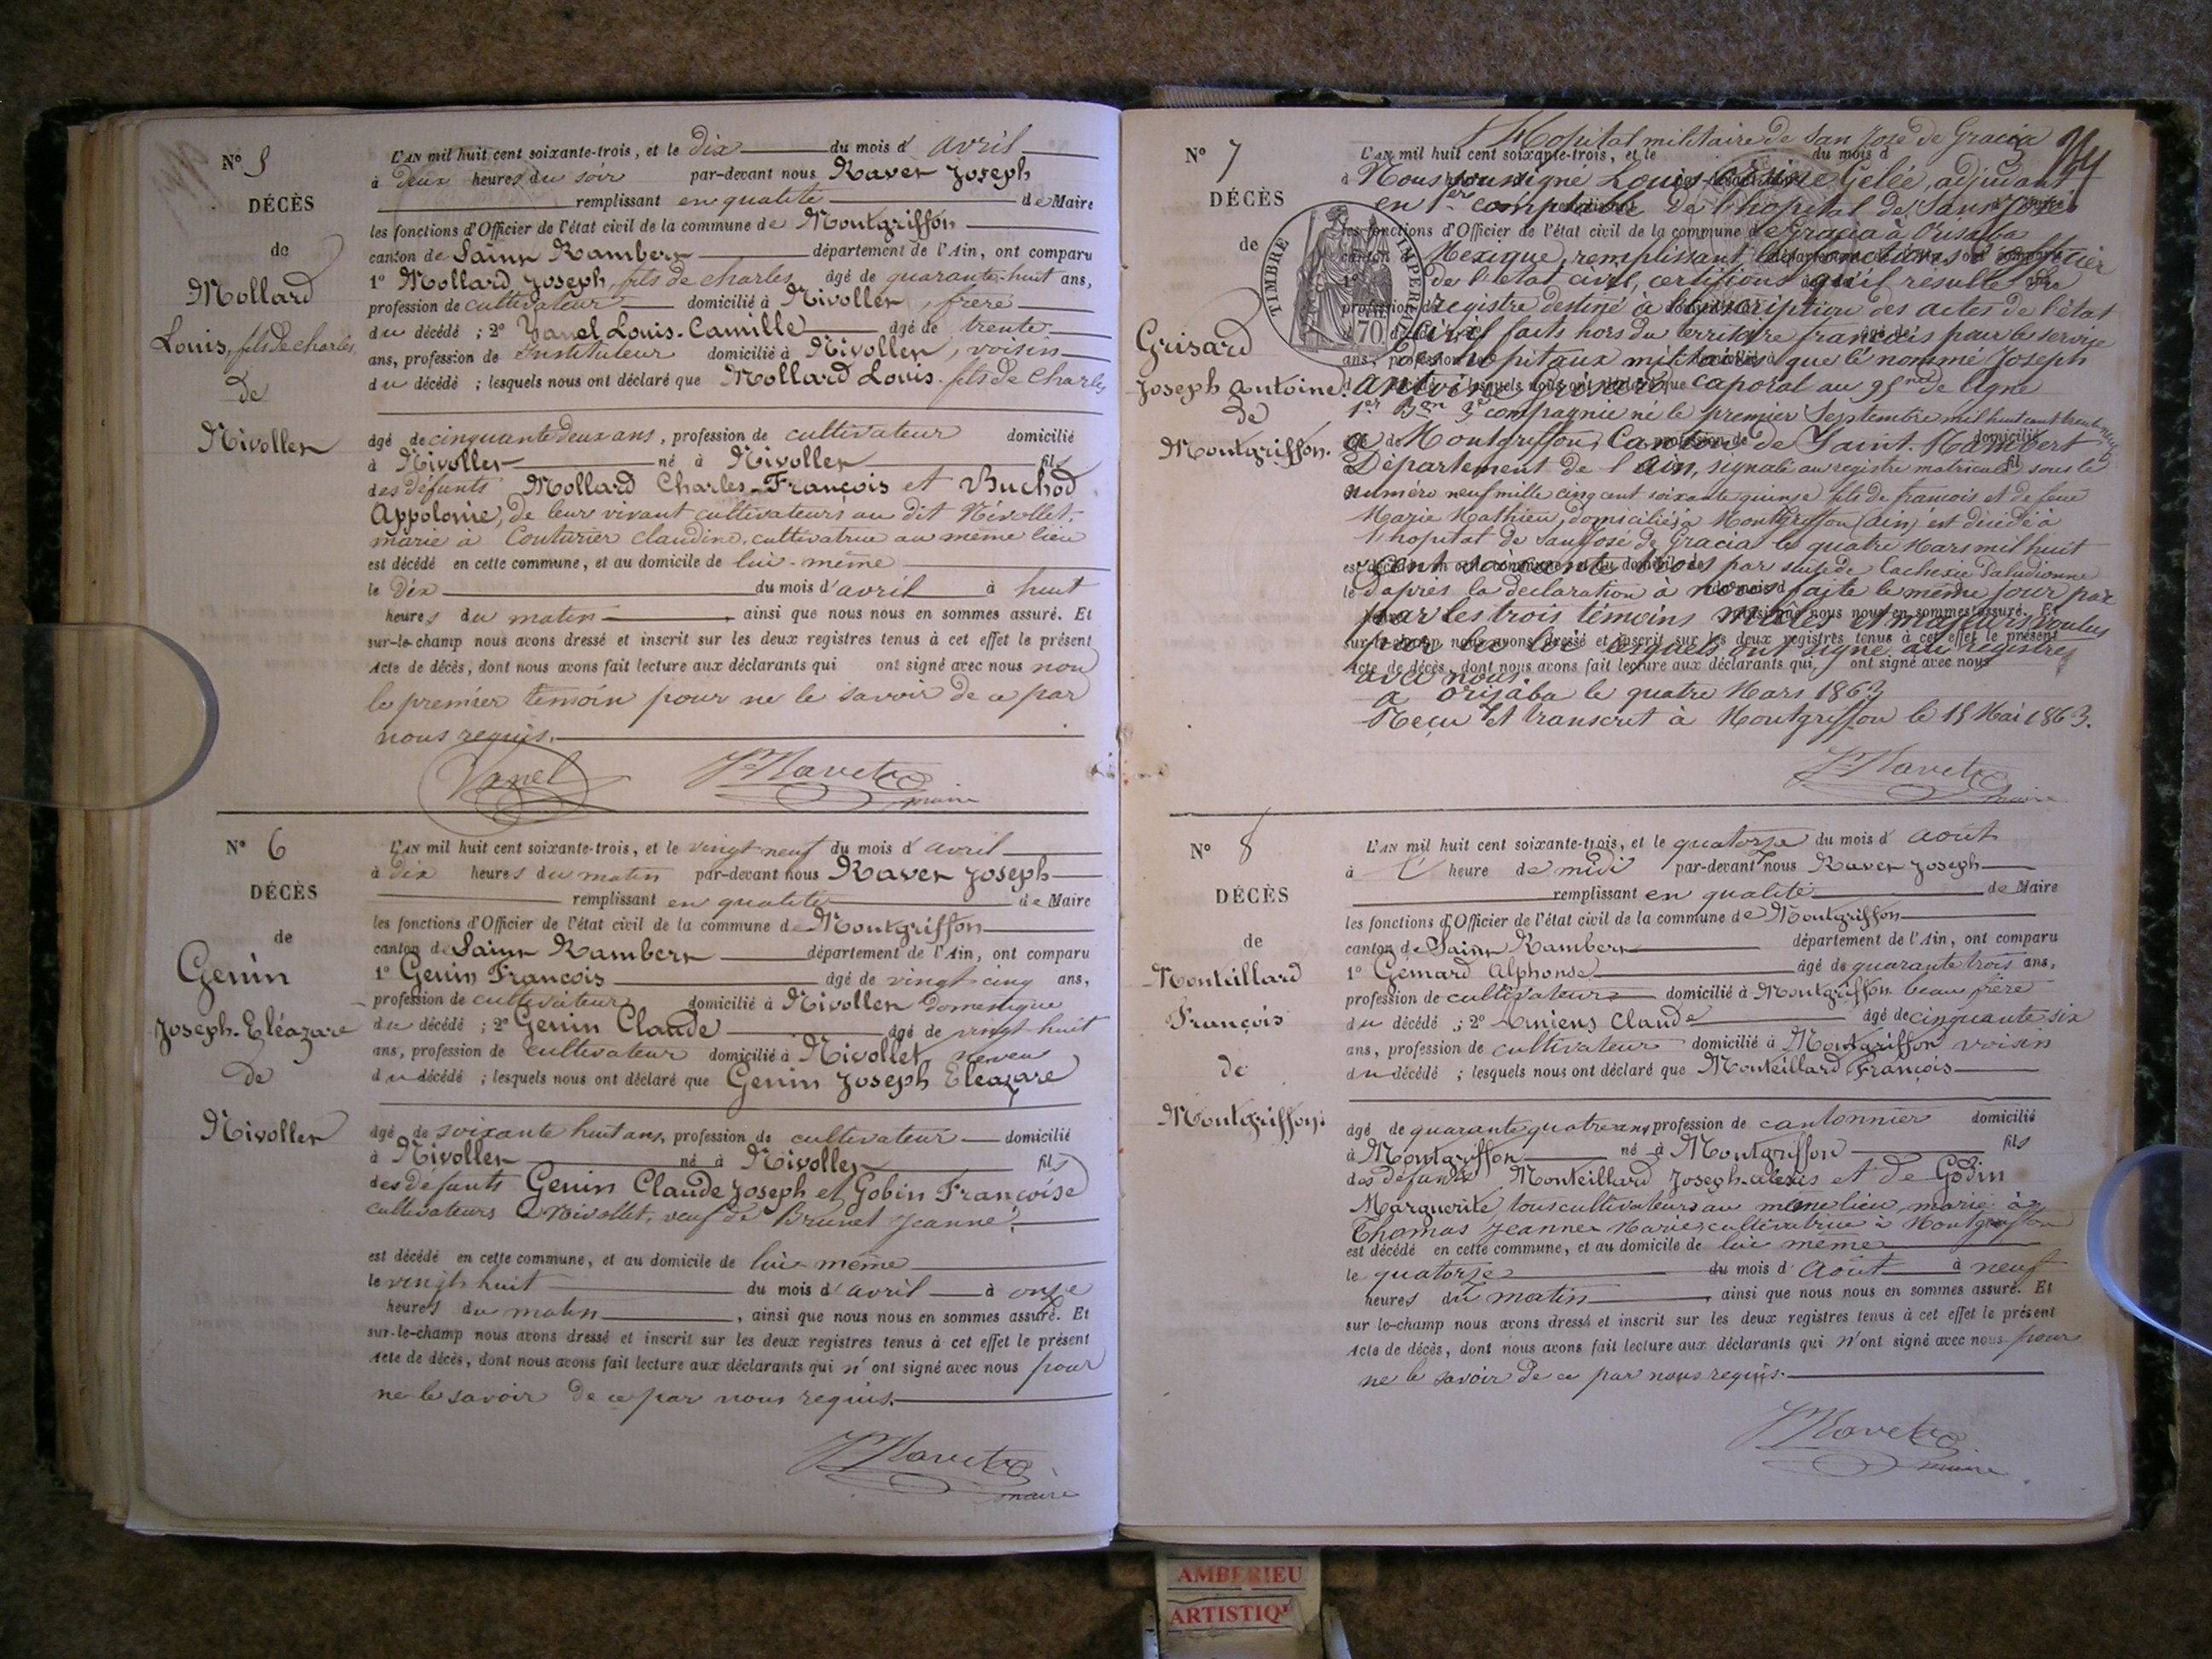 N° 5
DÉCÈS
de
Mollard
Louis, fils de charles
de
Nivollet
L'AN mil huit cent soixante-trois, et le dix du mois d'avril
à deux heures du soir par-devant nous Ravet Joseph
remplissant en qualité de Maire
les fonctions d'Officier de l'état civil de la commune de Montgriffon
canton de Saint Rambert département de l'Ain, ont comparu
1° Mollard Joseph, fils de charles âgé de quarante-huit ans,
profession de cultivateur domicilié à Nivollet, frère
du décédé ; 2° Vanel Louis-Camille âgé de trente
ans, profession de Instituteur domicilié à Nivollet, voisin
du décédé ; lesquels nous ont déclaré que Mollard Louis fils de Charles
âgé de cinquante deux ans, profession de cultivateur domicilié
à Nivollet né à Nivollet fils
des défunts Mollard Charles-François et Buchod
Appolonie, de leur vivant cultivateurs au dit Nivollet,
marié à Couturier claudine, cultivatrice au même lieu
est décédé en cette commune, et au domicile de lui-même
le Dix du mois d'avril à huit
heures du matin, ainsi que nous nous en sommes assuré. Et
sur-le-champ nous avons dressé et inscrit sur les deux registres tenus à cet effet le présent
Acte de décès, dont nous avons fait lecture aux déclarants qui ont signé avec nous non
le premier témoin pour ne le savoir de ce par
nous requis.
Vanel Jh Ravet
maire
N° 6
DÉCÈS
de
Genin
Joseph-Eléazare
de
Nivollet
L'AN mil huit cent soixante-trois, et le vingt neuf du mois d'avril
à dix heures du matin par-devant nous Ravet Joseph
remplissant en qualité de Maire
les fonctions d'Officier de l'état civil de la commune de Montgriffon
canton de Saint Rambert département de l'Ain, ont comparu
1° Genin François âgé de vingt cinq ans,
profession de cultivateur domicilié à Nivollet Domestique
du décédé ; 2° Genin Claude âgé de vingt huit
ans, profession de cultivateur domicilié à Nivollet, neveu
du décédé ; lesquels nous ont déclaré que Genin Joseph Eleazare
âgé de soixante huit ans, profession de cultivateur domicilié
à Nivollet né à Nivollet fils
des défunts Genin Claude Joseph et Gobin Françoise
cultivateurs à Nivollet, veuf de Brunet Jeanne.
est décédé en cette commune, et au domicile de lui-même
le vingt huit du mois d'avril à onze
heures du matin, ainsi que nous nous en sommes assuré. Et
sur-le-champ nous avons dressé et inscrit sur les deux registres tenus à cet effet le présent
Acte de décès, dont nous avons fait lecture aux déclarants qui n'ont signé avec nous pour
ne le savoir de ce par nous requis.
Jh Ravet
maire
N° 7
DÉCÈS
de
Grisard
Joseph Antoine
de
Montgriffon.
TIMBRE IMPERIAL
70
Hopital militaire de San José de Gracia
L'AN mil huit cent soixante-trois, et le du mois d
Nous soussigné Louis Gelée, adjudant
en 1er comptable de l'hopital de San José
les fonctions d'Officier de l'état civil de la commune de Gracia à Orisaba
Mexique, remplissant les fonctions d'officier
de l'état civil, certifions qu'il résulte du
registre destiné à l'inscription des actes de l'état
civil faits hors du territoire français pour le service
des hopitaux militaires que le nommé Joseph
antoine Grisard caporal au 95me de ligne
1er Bon 3e compagnie né le premier Septembre mil huit cent trente
à Montgriffon, Canton de Saint. Rambert
Département de l'Ain, signalé au registre matricule sous le
numéro neuf mille cinq cent soixante quinze fils de francois et de feue
Marie Mathieu, domiciliés à Montgriffon (ain) est décédé à
l'hopital de San José de Gracia le quatre Mars mil huit
cent soixante trois par suite de Cachexie Paludienne
d'après la déclaration à nous faite le même jour par
par les trois témoins mâles et majeurs voulus
par la loi lesquels ont signé au registres
avec nous.
Acte de décès, dont nous avons fait lecture aux déclarants qui ont signé avec nous
a orizaba le quatre Mars 1863
Reçu et transcrit à Montgriffon le 15 Mai 1863.
Jh Ravet
maire
N° 8
DÉCÈS
de
Monteillard
François
de
Montgriffon.
L'AN mil huit cent soixante-trois, et le quatorze du mois d'août
à l' heure de midi par-devant nous Ravet Joseph
remplissant en qualité de Maire
les fonctions d'Officier de l'état civil de la commune de Montgriffon
canton de Saint Rambert département de l'Ain, ont comparu
1° Gemard Alphonse âgé de quarante trois ans,
profession de cultivateur domicilié à Montgriffon beau frère
du décédé ; 2° Amiens Claude âgé de cinquante six
ans, profession de cultivateur domicilié à Montgriffon voisin
du décédé ; lesquels nous ont déclaré que Monteillard François
âgé de quarante quatre ans profession de cantonnier domicilié
à Montgriffon né à Montgriffon fils
des défunts Monteillard Joseph-alexis et de Godin
Marguerite tous cultivateurs au même lieu, marié à
Thomas Jeanne Marie cultivatrice à Montgriffon
est décédé en cette commune, et au domicile de lui même
le quatorze du mois d'Août à neuf
heures du matin, ainsi que nous nous en sommes assuré. Et
sur le-champ nous avons dressé et inscrit sur les deux registres tenus à cet effet le présent
Acte de décès, dont nous avons fait lecture aux déclarants qui n'ont signé avec nous pour
ne le savoir de ce par nous requis.
Jh Ravet
maire
AMBERIEU
ARTISTIQUE